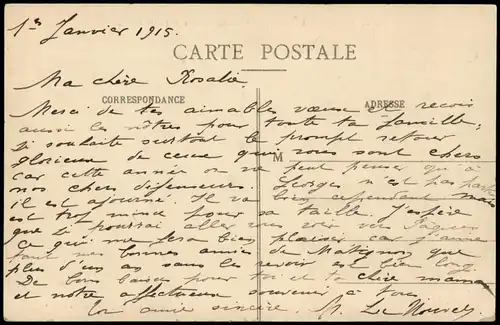 1er Janvier 1915.
CARTE POSTALE
Ma chère Rosalie
CORRESPONDANCE
ADRESSE
Merci de tes aimables vœux et reçois
aussi les nôtres pour toute ta famille,
je souhaite surtout le prompt retour
glorieux de ceux qui vous sont chers
M
car cette année on ne peut penser qu'à
nos chers défenseurs. Georges n'est pas parti
il est ajourné. Il va bien cependant mais
est trop mince pour sa taille. J'espère
que je pourrai aller vous voir vers Pâques
ce qui me fera bien plaisir car j'aime
tant mes bonnes amies de Matignon que
plus d'un an sans les revoir est bien long.
De bons baisers pour toi et ta chère maman
et notre affectueux souvenir à tous
ton amie sincère. M. Le